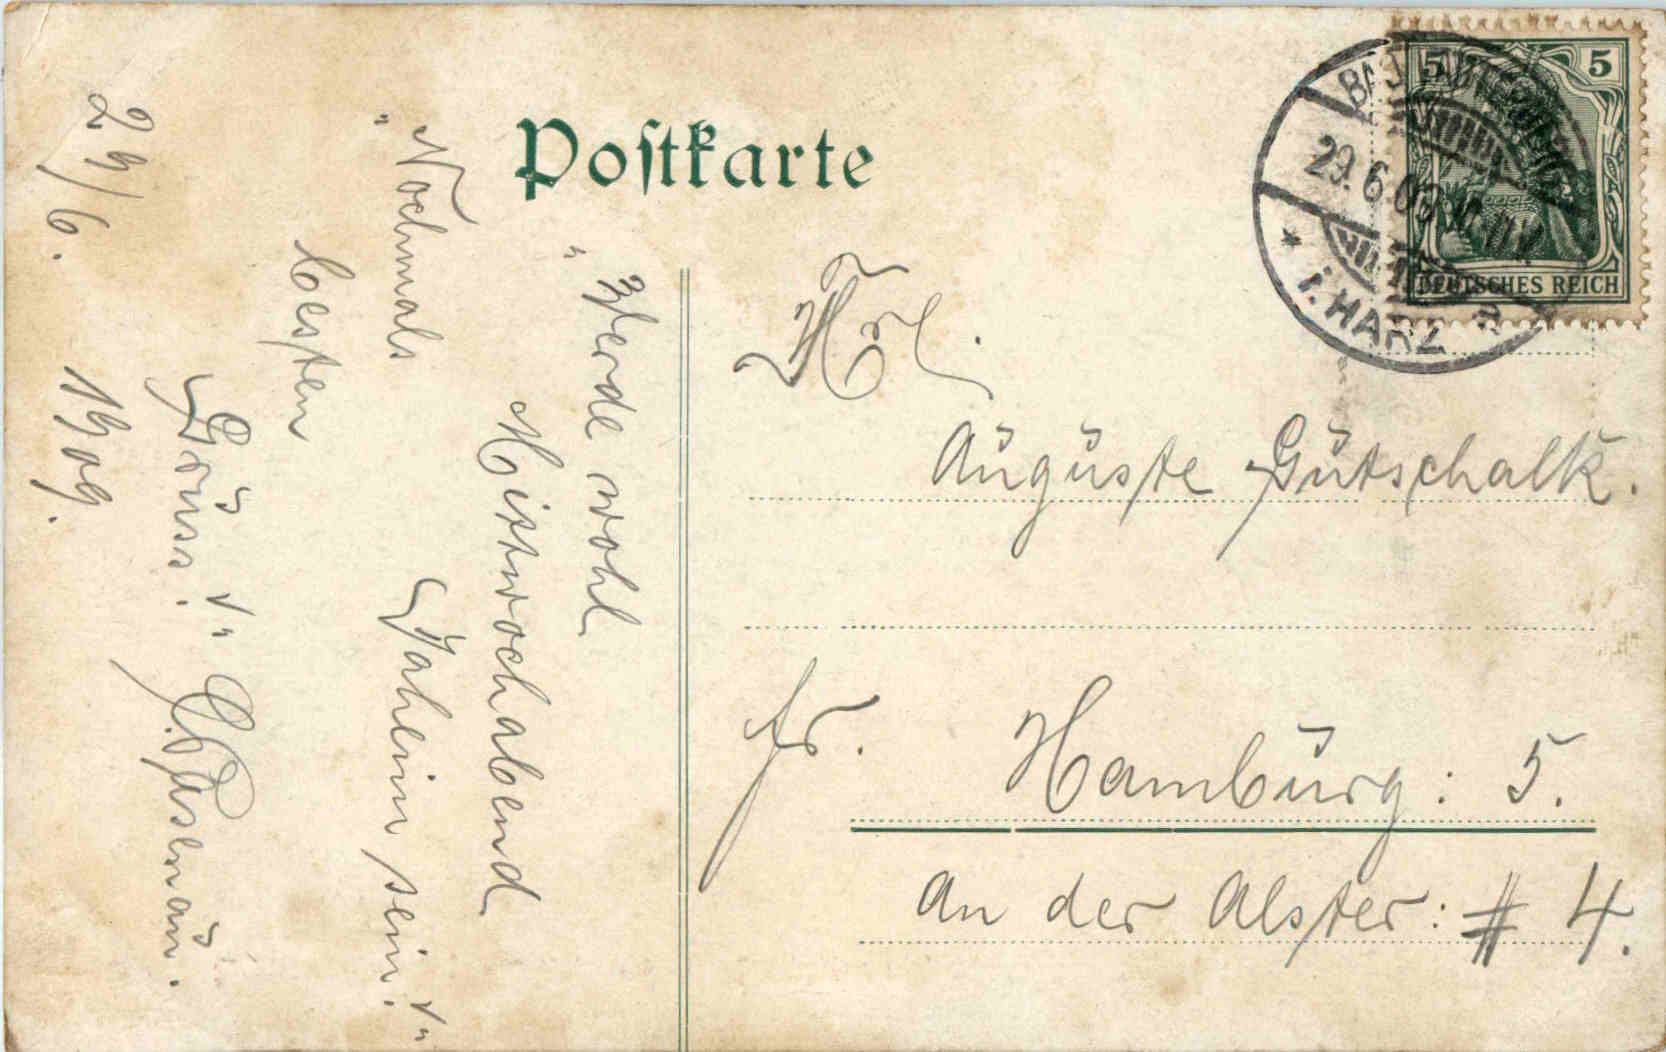 Postkarte
5
5
DEUTSCHES REICH
BAD LAUTERBERG
29.6.09
* i. HARZ
Frl.
Auguste Gutschalk.
fr. Hamburg: 5.
An der Alster: # 4.
„Werde wohl
Mittwochabend
Daheim sein!"
„Nochmals
besten
Gruss!"
29/6. 1909.